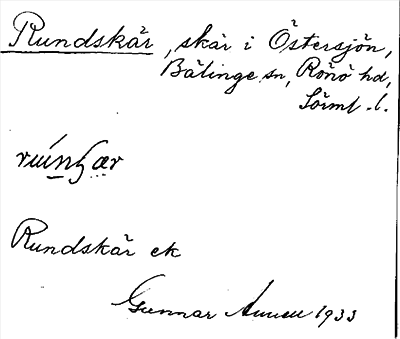 Rundskär, skär i Östersjön,
Bälinge sn, Rönö hd,
Sörml. l.
Rundskär ek
Gunnar 1933